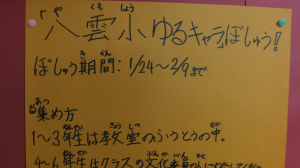 「八雲小ゆるキャラ」ぼしゅう!
ぼしゅう期間:1/24~2/9まで
集め方
1~3年生は教室のふうとうの中。
4~6年生はクラスの文化委員の人にわたしてください